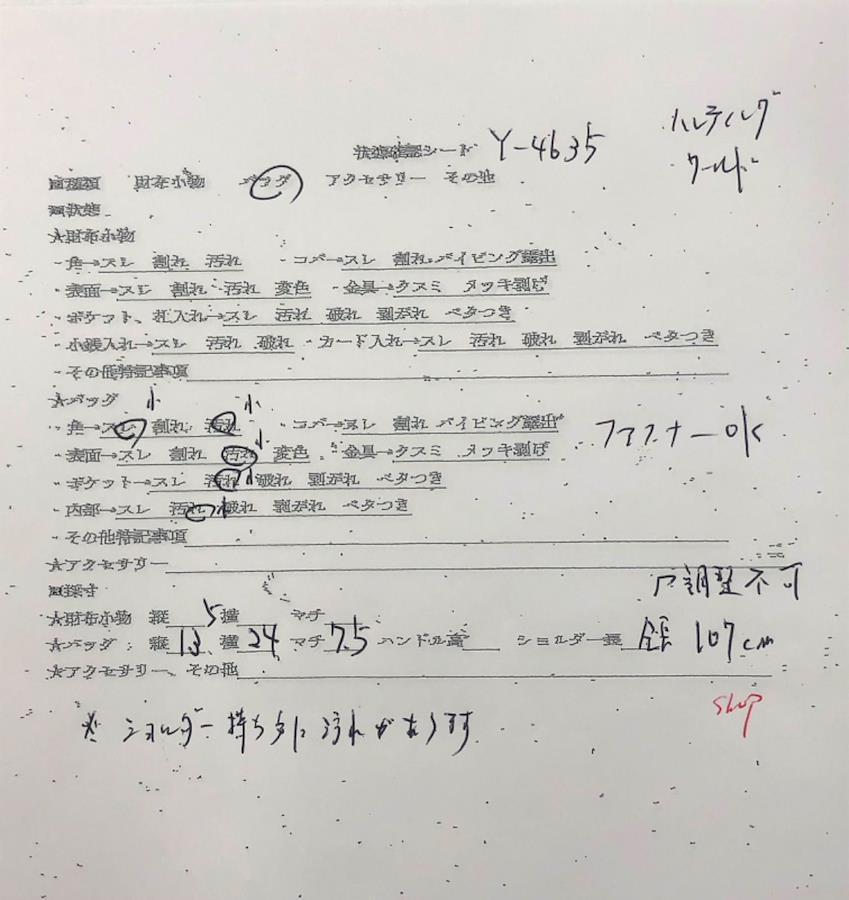 状態確認シート Y-4635
ハンティング
ワールド
■種類 財布小物 バッグ アクセサリー その他
■状態
★財布小物
・角→スレ 割れ 汚れ ・コバ→スレ 割れ パイピング露出
・表面→スレ 割れ 汚れ 変色 ・金具→クスミ メッキ剥げ
・ポケット、札入れ→スレ 汚れ 破れ 剥がれ ベタつき
・小銭入れ→スレ 汚れ 破れ ・カード入れ→スレ 汚れ 破れ 剥がれ ベタつき
・その他特記事項
★バッグ 小 小
・角→スレ 割れ 汚れ ・コバ→スレ 割れ パイピング露出 ファスナーOK
・表面→スレ 割れ 汚れ 小 変色 ・金具→クスミ メッキ剥げ
・ポケット→スレ 汚れ 小 破れ 剥がれ ベタつき
・内部→スレ 汚れ 小 破れ 剥がれ ベタつき
・その他特記事項
★アクセサリー
■採寸 調整不可
★財布小物 縦 5 横 マチ
★バッグ : 縦 13 横 24 マチ 7.5 ハンドル高 ショルダー長 全長 107cm
★アクセサリー、その他
shop
※ ショルダー持ち手に汚れがあります